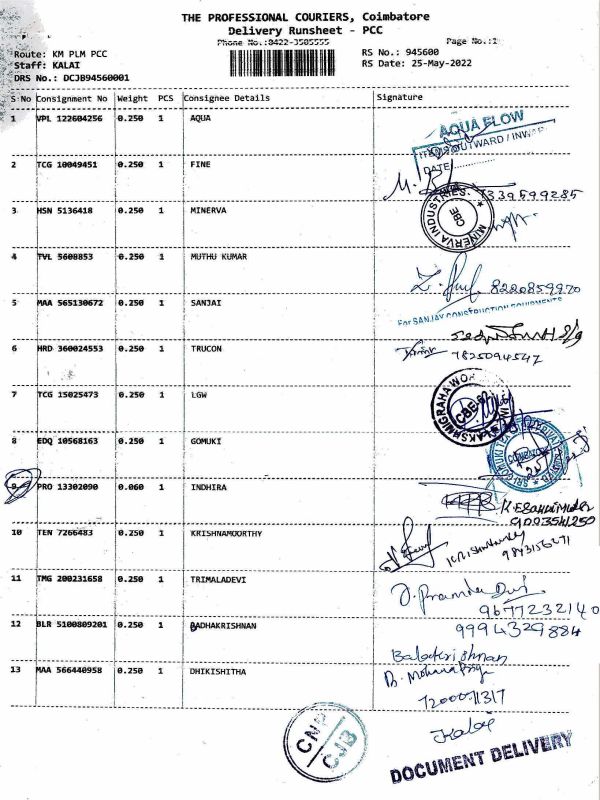 THE PROFESSIONAL COURIERS, Coimbatore
Delivery Runsheet - PCC
Phone No.:0422-3505555
Page No.:1
Route: KM PLM PCC
Staff: KALAI
DRS No.: DCJB94560001
RS No.: 945600
RS Date: 25-May-2022
S No Consignment No Weight PCS Consignee Details Signature
1 VPL 122604256 0.250 1 AQUA
AQUA FLOW
OUTWARD / INWARD
DATE
2 TCG 10049451 0.250 1 FINE
7339599285
3 HSN 5136418 0.250 1 MINERVA
MINERVA INDUSTRIES
CBE
4 TVL 5608853 0.250 1 MUTHU KUMAR
8220859970
5 MAA 565130672 0.250 1 SANJAI
For SANJAY CONSTRUCTION EQUIPMENTS
6 HRD 360024553 0.250 1 TRUCON
7825094547
7 TCG 15025473 0.250 1 LGW
8 EDQ 10568163 0.250 1 GOMUKI
9 PRO 13302090 0.060 1 INDHIRA
9003541250
10 TEN 7266483 0.250 1 KRISHNAMOORTHY
9843156271
11 TMG 200231658 0.250 1 TRIMALADEVI
9677232140
12 BLR 5100809201 0.250 1 RADHAKRISHNAN
9994329884
Balakrishnan
13 MAA 566440958 0.250 1 DHIKISHITHA
7200071317
Kalai
CNP
CJB
DOCUMENT DELIVERY